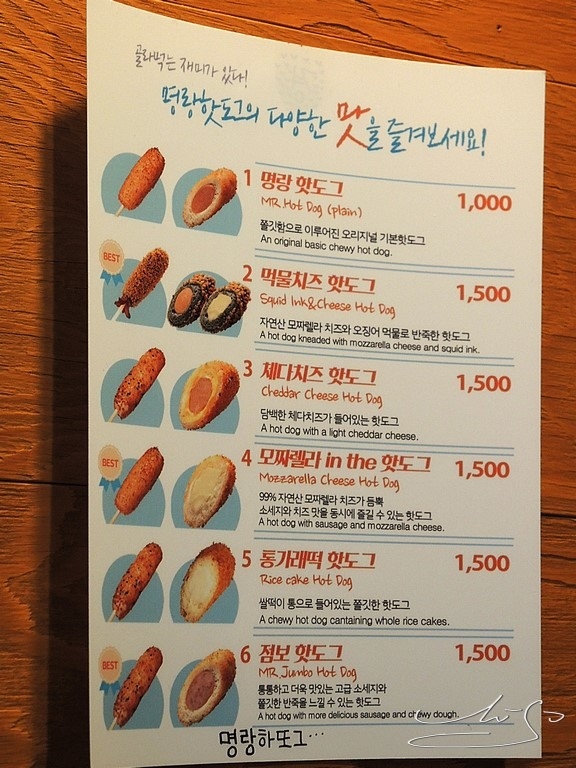 골라먹는 재미가 있다!
명랑핫도그의 다양한 맛을 즐겨보세요!
1 명랑 핫도그 1,000
MR.Hot Dog (plain)
쫄깃함으로 이루어진 오리지널 기본핫도그
An original basic chewy hot dog.
BEST
2 먹물치즈 핫도그 1,500
Squid Ink&Cheese Hot Dog
자연산 모짜렐라 치즈와 오징어 먹물로 반죽한 핫도그
A hot dog kneaded with mozzarella cheese and squid ink.
3 체다치즈 핫도그 1,500
Cheddar Cheese Hot Dog
담백한 체다치즈가 들어있는 핫도그
A hot dog with a light cheddar cheese.
BEST
4 모짜렐라 in the 핫도그 1,500
Mozzarella Cheese Hot Dog
99% 자연산 모짜렐라 치즈가 듬뿍
소세지와 치즈 맛을 동시에 즐길 수 있는 핫도그
A hot dog with sausage and mozzarella cheese.
5 통가래떡 핫도그 1,500
Rice cake Hot Dog
쌀떡이 통으로 들어있는 쫄깃한 핫도그
A chewy hot dog cantaining whole rice cakes.
BEST
6 점보 핫도그 1,500
MR.Jumbo Hot Dog
통통하고 더욱 맛있는 고급 소세지와
쫄깃한 반죽을 느낄 수 있는 핫도그
A hot dog with more delicious sausage and chewy dough.
명랑하또그...